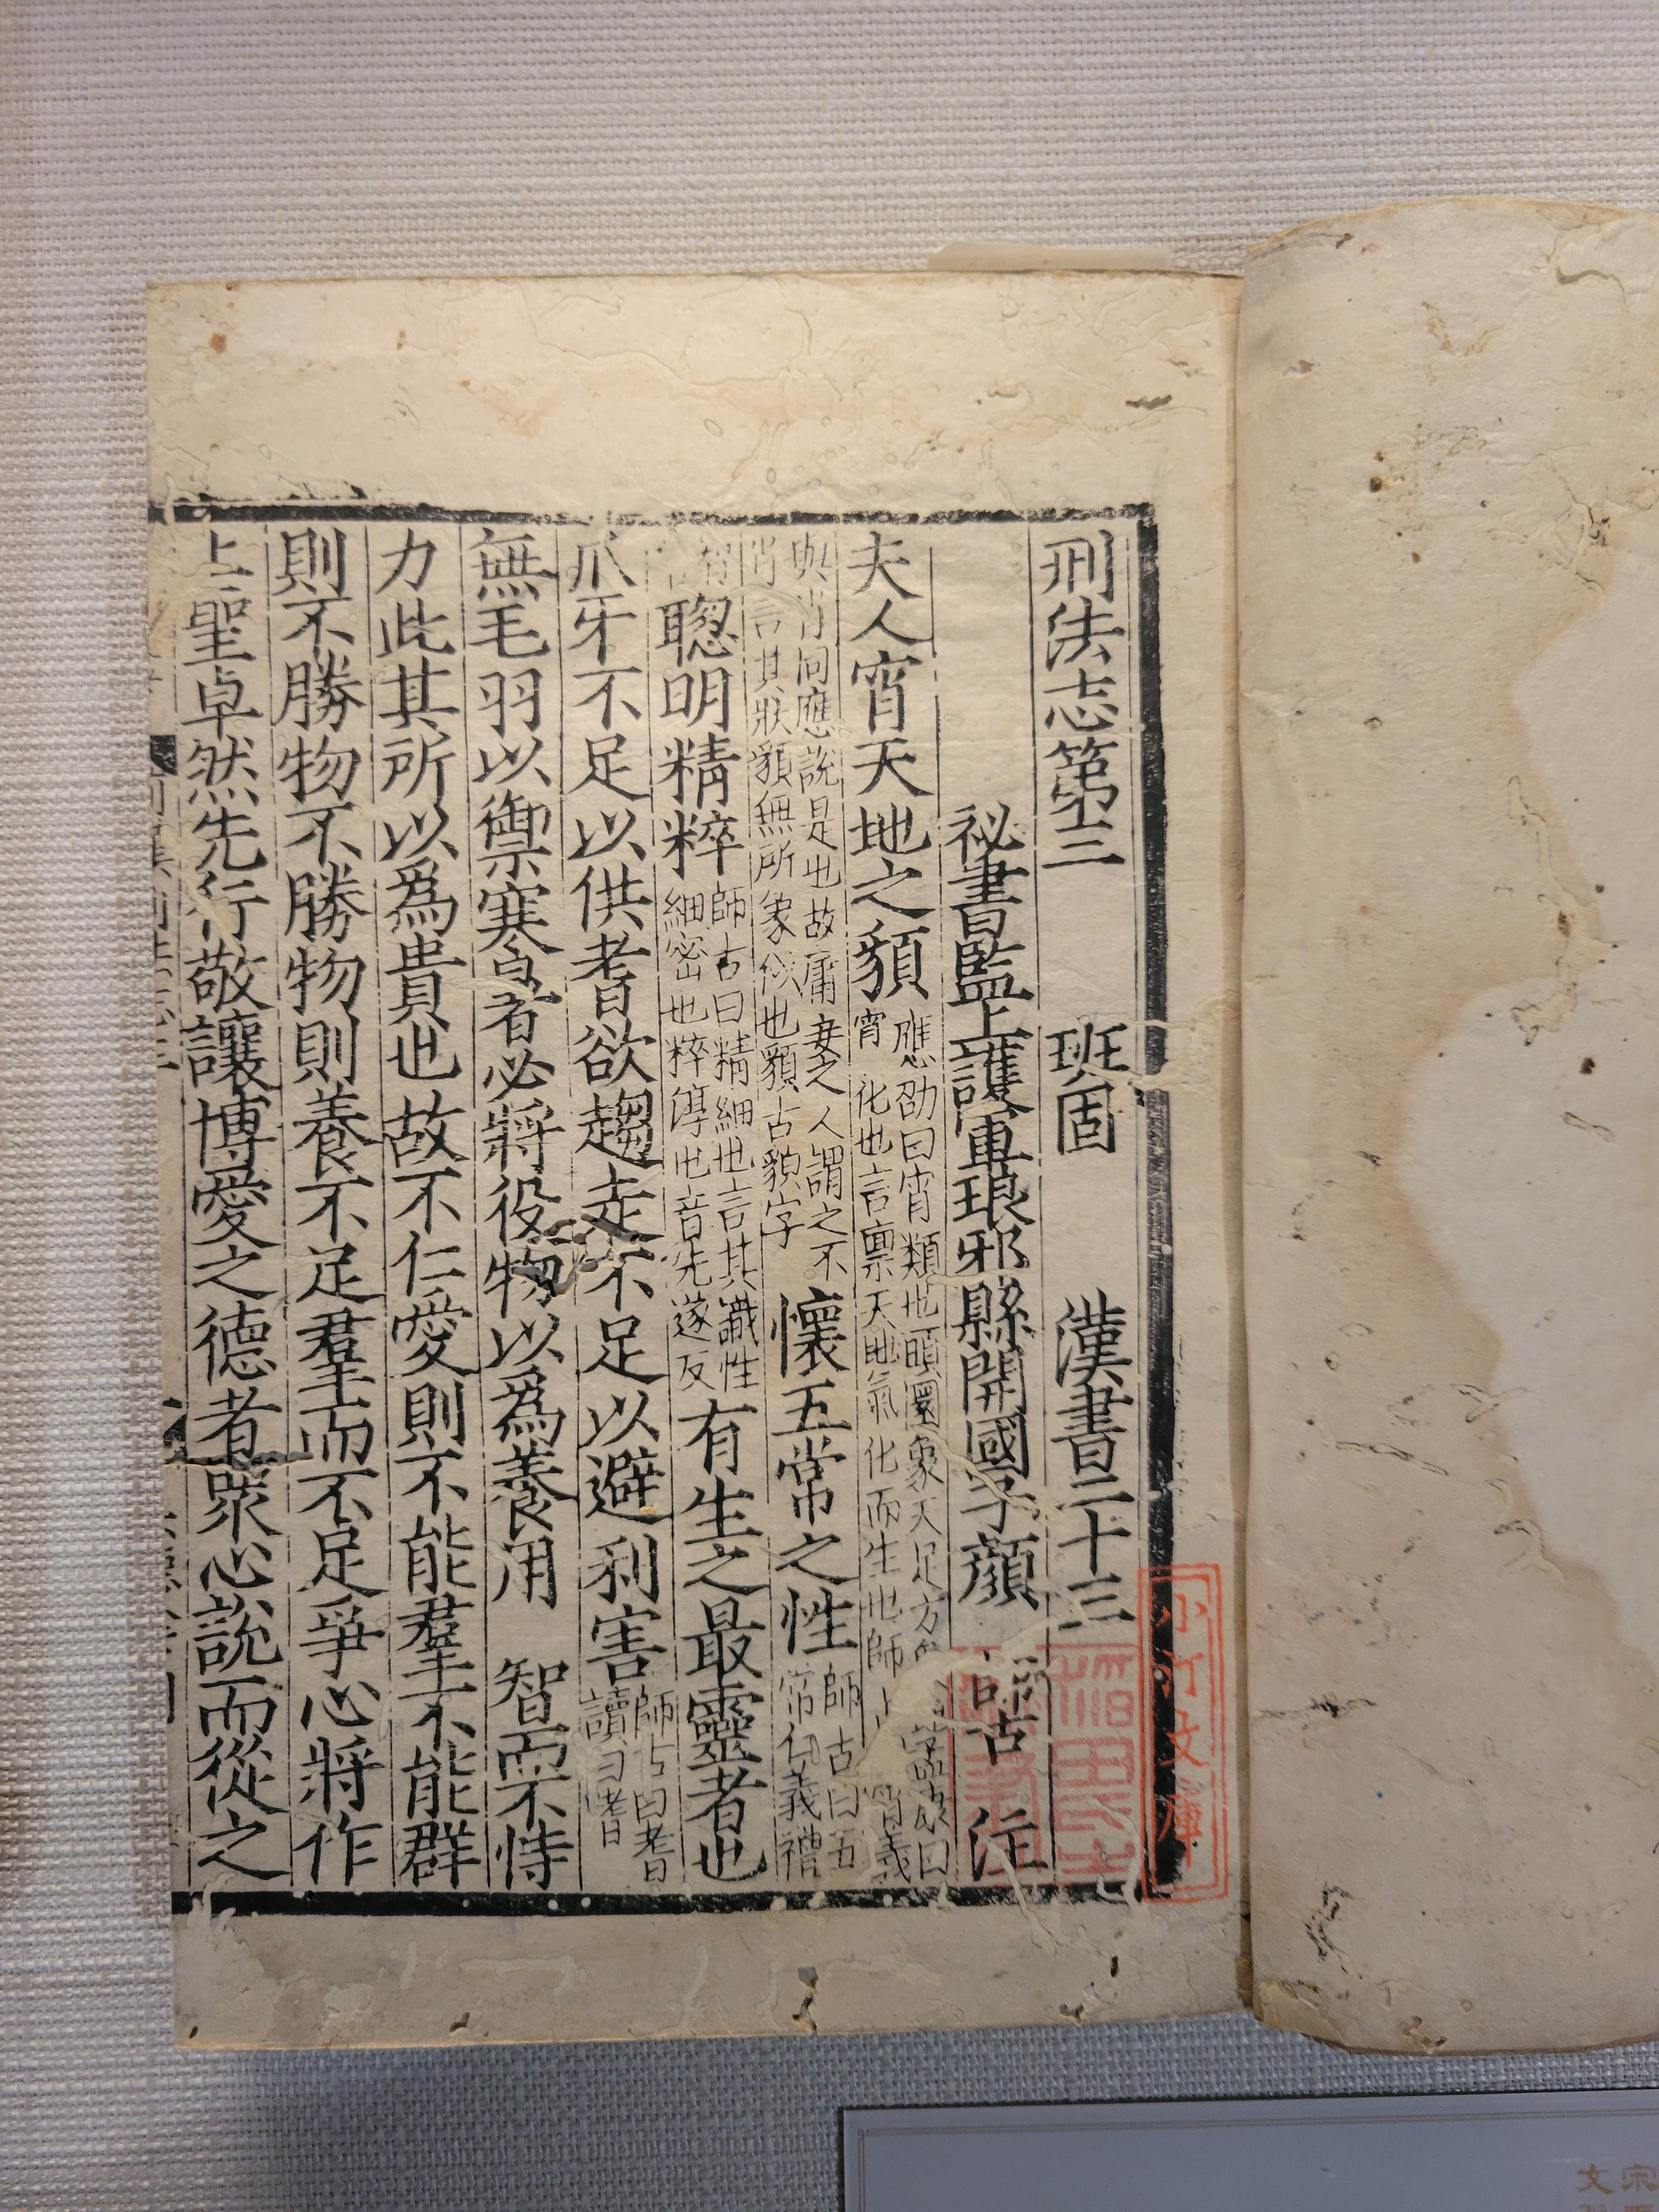 刑法志第三 班固 漢書二十三
祕書監上護軍琅邪縣開國子顏 師古 注
夫人宵天地之䫉 應劭曰宵類也頭圜象天足方 孟康曰
宵 化也言稟天地氣化而生也師 宵義
與肖同應說是也故庸妾之人謂之不
肖言其狀䫉無所象似也䫉古貌字 懷五常之性 師古曰五
常仁義禮
智 聰明精粹 師古曰精細也言其識性
細密也粹淳也音先遂反 有生之最靈者也
爪牙不足以供耆欲趨走不足以避利害 師古曰耆
讀曰嗜
無毛羽以禦寒暑必將役物以為養用 智而不恃
力此其所以為貴也故不仁愛則不能羣不能群
則不勝物不勝物則養不足羣而不足爭心將作
上聖卓然先行敬讓博愛之德者衆心說而從之
小汀文庫
文宋